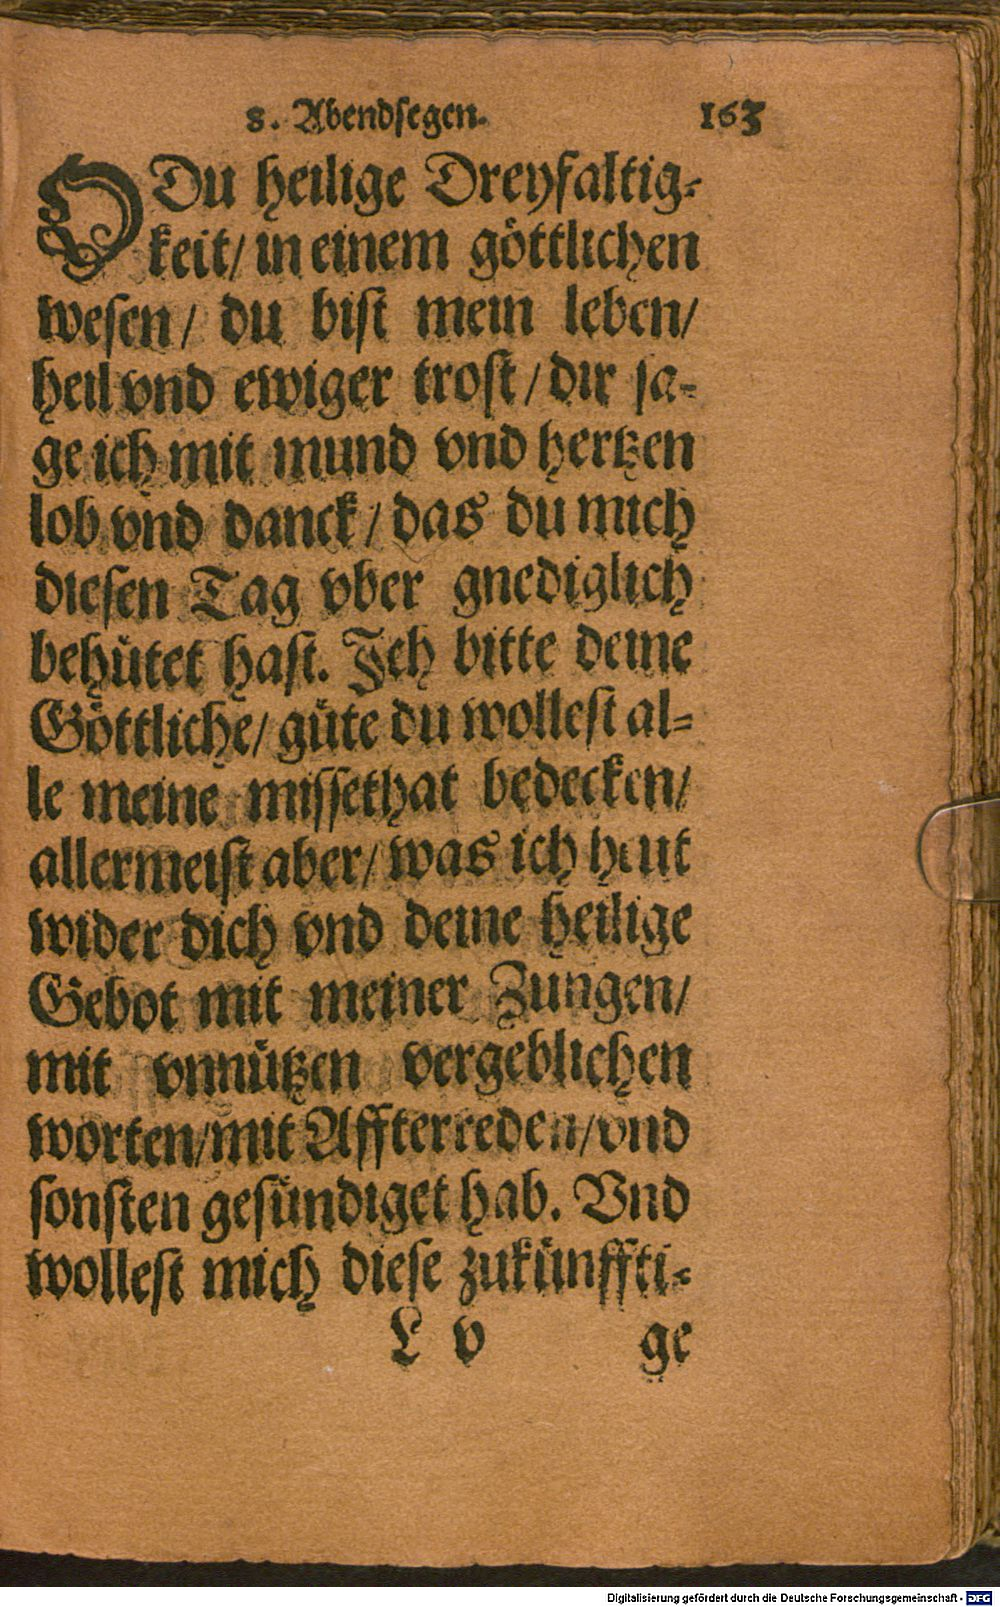 8. Abendsegen. 163
O Du heilige Dreyfaltig-
keit/ in einem göttlichen
wesen/ du bist mein leben/
heil vnd ewiger trost/ dir sa-
ge ich mit mund vnd hertzen
lob vnd danck/ das du mich
diesen Tag vber gnediglich
behütet hast. Ich bitte deine
Göttliche/ güte du wollest al-
le meine missethat bedecken/
allermeist aber/ was ich heut
wider dich vnd deine heilige
Gebot mit meiner Zungen/
mit vnnützen vergeblichen
worten/ mit Affterreden/ vnd
sonsten gesündiget hab. Vnd
wollest mich diese zukünffti-
L v ge
Digitalisierung gefördert durch die Deutsche Forschungsgemeinschaft - DFG